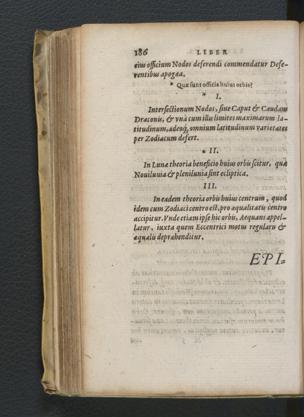 186 LIBER
eius officium Nodos deferendi commendatur Defe-
rentibus apogæa.
* Quæ sunt officia huius orbis?
* I.
Intersectionum Nodos, siue Caput & Caudam
Draconis, & vnà cum illis limites maximarum la-
titudinum, adeoq́, omnium latitudinum varietates
per Zodiacum defert.
* II.
In Lunæ theoria beneficio huius orbis scitur, quæ
Nouilunia & plenilunia sint ecliptica.
III.
In eadem theoria orbis huius centrum, quod
idem cum Zodiaci centro est, pro æqualitatis centro
accipitur. Vnde etiam ipse hic orbis, Aequans appel-
latur, iuxta quem Eccentrici motus regularis &
æqualis deprehenditur.
EPI-